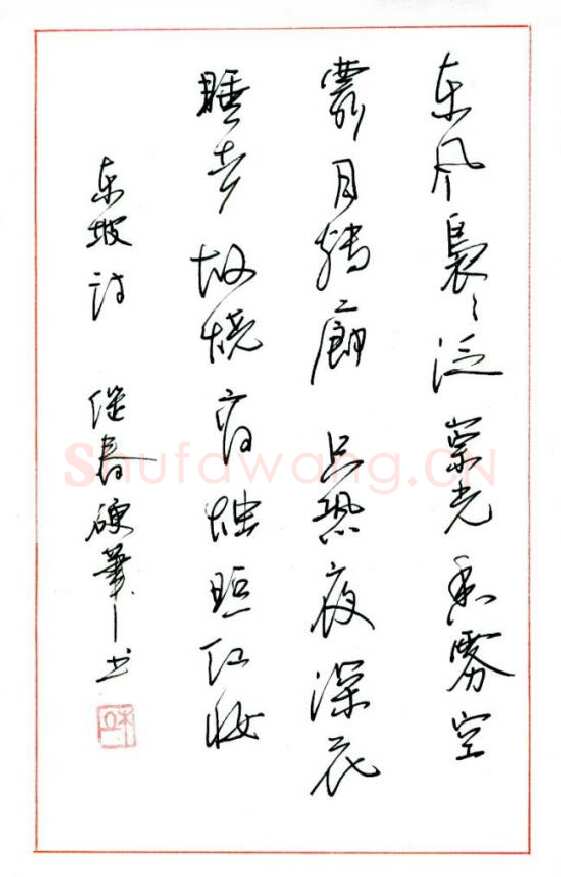 东风袅々泛崇光香雾空
月轉廊只恐夜深花
睡去故烧高烛照红妆
东坡诗 继春硬筆书
Shufawang.CN